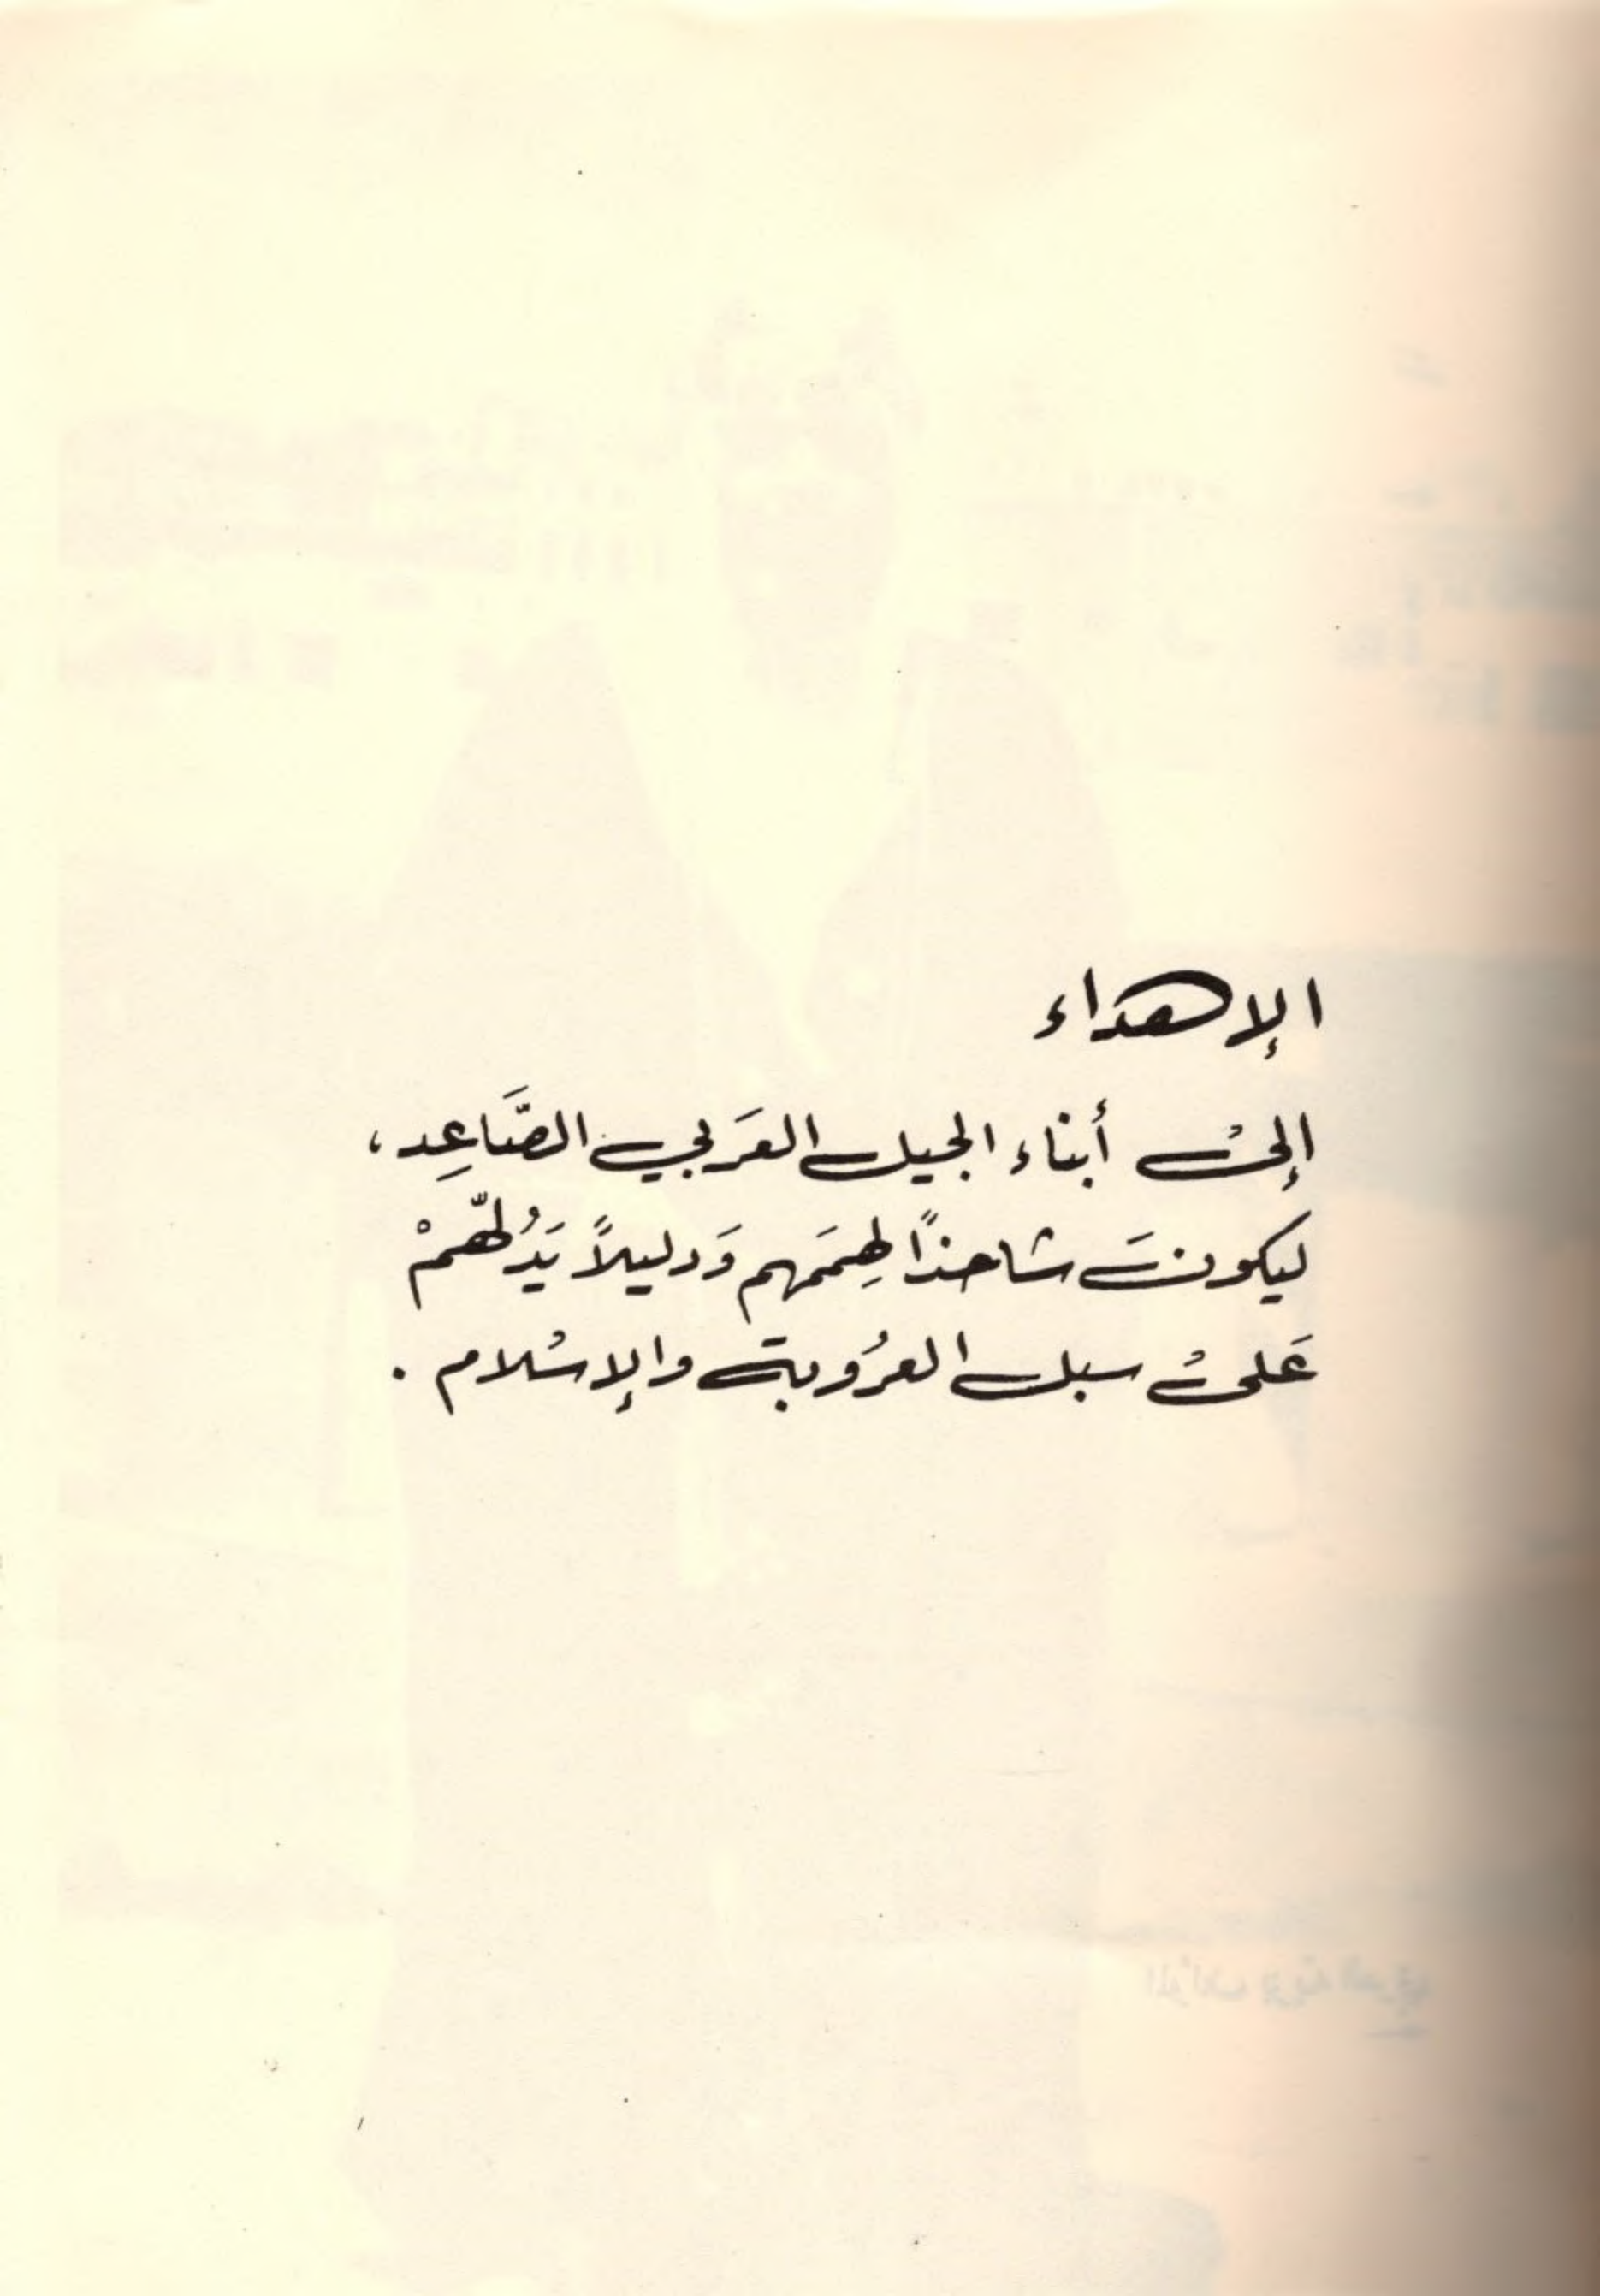 الإهداء
إلى أبناء الجيل العَربي الصَّاعِد،
ليكونَ شاحذاً لِهِمَمهم وَدليلاً يَدُلّهمْ
عَلى سبل العرُوبة والإسلام .